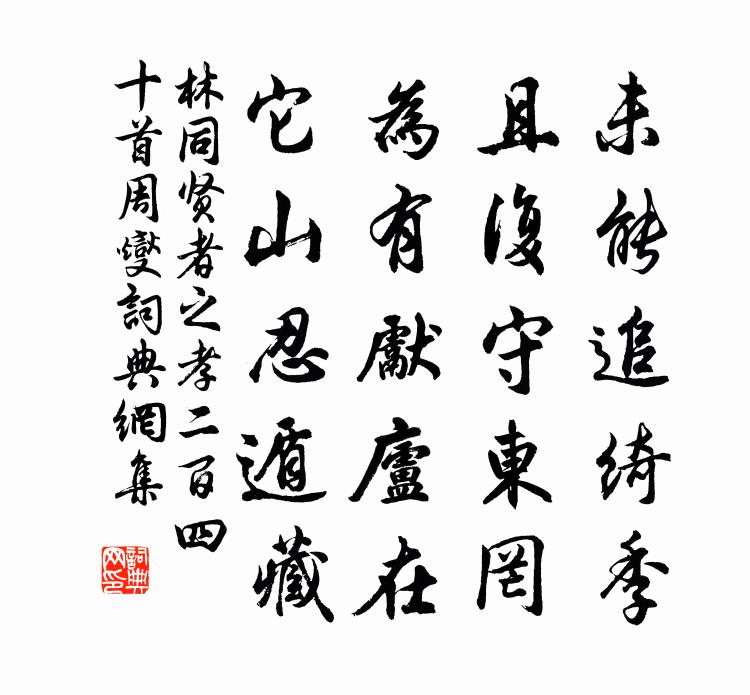 未能追绮季
且復守東罔
為有獻廬在
它山忍遁藏
林同贤者之孝二百四
十首周燮詞典網集
詞典网印